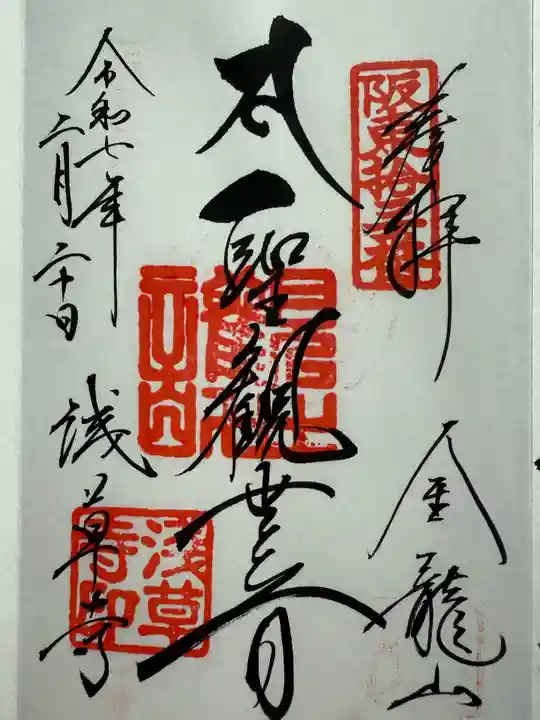 奉拝
阪東拾三番
金龍山
聖観世音
令和七年
二月二十日
浅草寺
浅草寺印